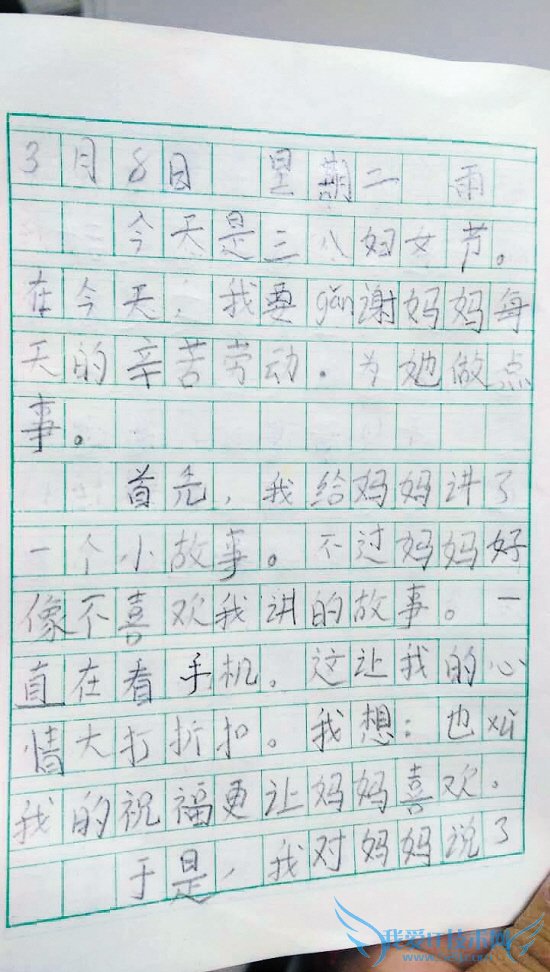 3月8日 星期二 雨
今天是三八妇女节。
在今天,我要gǎn谢妈妈每
天的辛苦劳动.为她做点
事。
首先,我给妈妈讲了
一个小故事。不过妈妈好
像不喜欢我讲的故事。一
直在看手机。这让我的心
情大打折扣。我想:也
我的祝福更让妈妈喜欢。
于是,我对妈妈说了